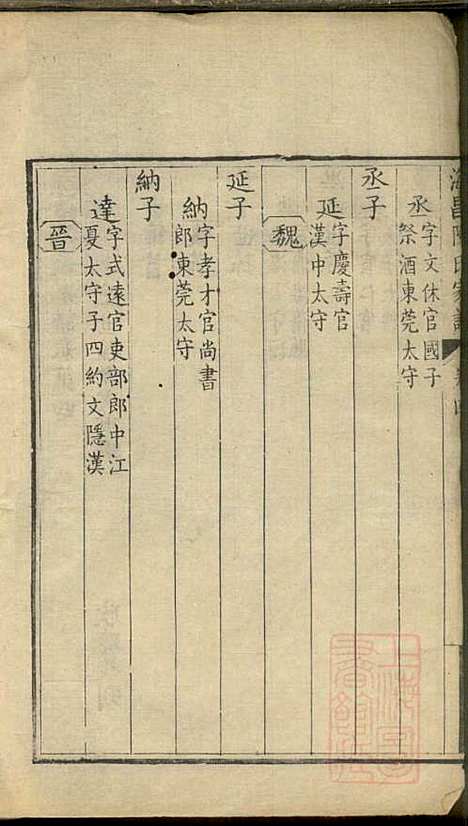 海昌陳氏家譜
丞 字文休官國子祭酒東莞太守
丞子
延 字慶壽官漢中太守
魏
延子
納 字孝才官尚書郎東莞太守
納子
達 字式遠官吏部郎中江夏太守子四約文隱漢
晉